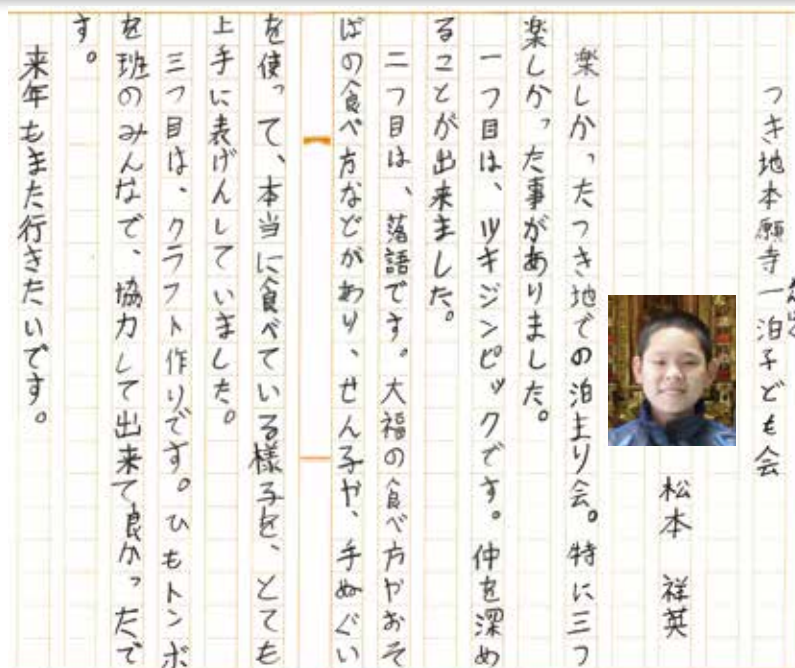 つき地本願寺一泊子ども会
松本 祥英
楽しかったつき地での泊まり会。特に三つ
楽しかった事がありました。
一つ目は、ツキジンピックです。仲を深め
ることが出来ました。
二つ目は、落語です。大福の食べ方やおそ
ばの食べ方などがあり、せん子や、手ぬぐい
を使って、本当に食べている様子を、とても
上手に表げんしていました。
三つ目は、クラフト作りです。ひもトンボ
を班のみんなで、協力して出来て良かったで
す。
来年もまた行きたいです。